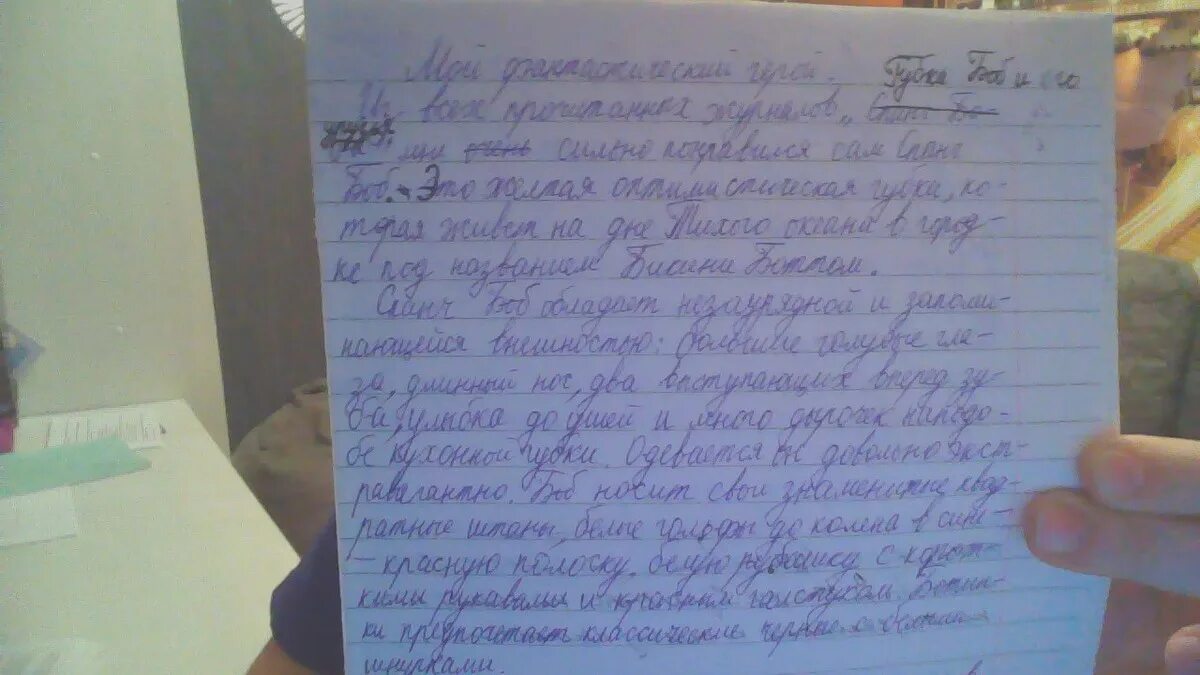 Мой фантастический герой.
Губка Боб и его
Из всех прочитанных журналов „Спанч Бо-
мне очень сильно понравился сам Спанч
Боб. Это желтая оптимистическая губка, ко-
торая живет на дне Тихого океана в город-
ке под названием Бикини Боттом.
Спанч Боб обладает незаурядной и запоми-
нающейся внешностью: большие голубые гла-
за, длинный нос, два выступающих вперед зу-
ба, улыбка до ушей и много дырочек наподо-
бе кухонной губки. Одевается он довольно экст-
равагантно. Боб носит свои знаменитые квад-
ратные штаны, белые гольфы до колена в сине-
- красную полоску, белую рубашку с корот-
кими рукавами и красным галстуком. Ботин-
ки предпочетает классические черные с
шнурками.